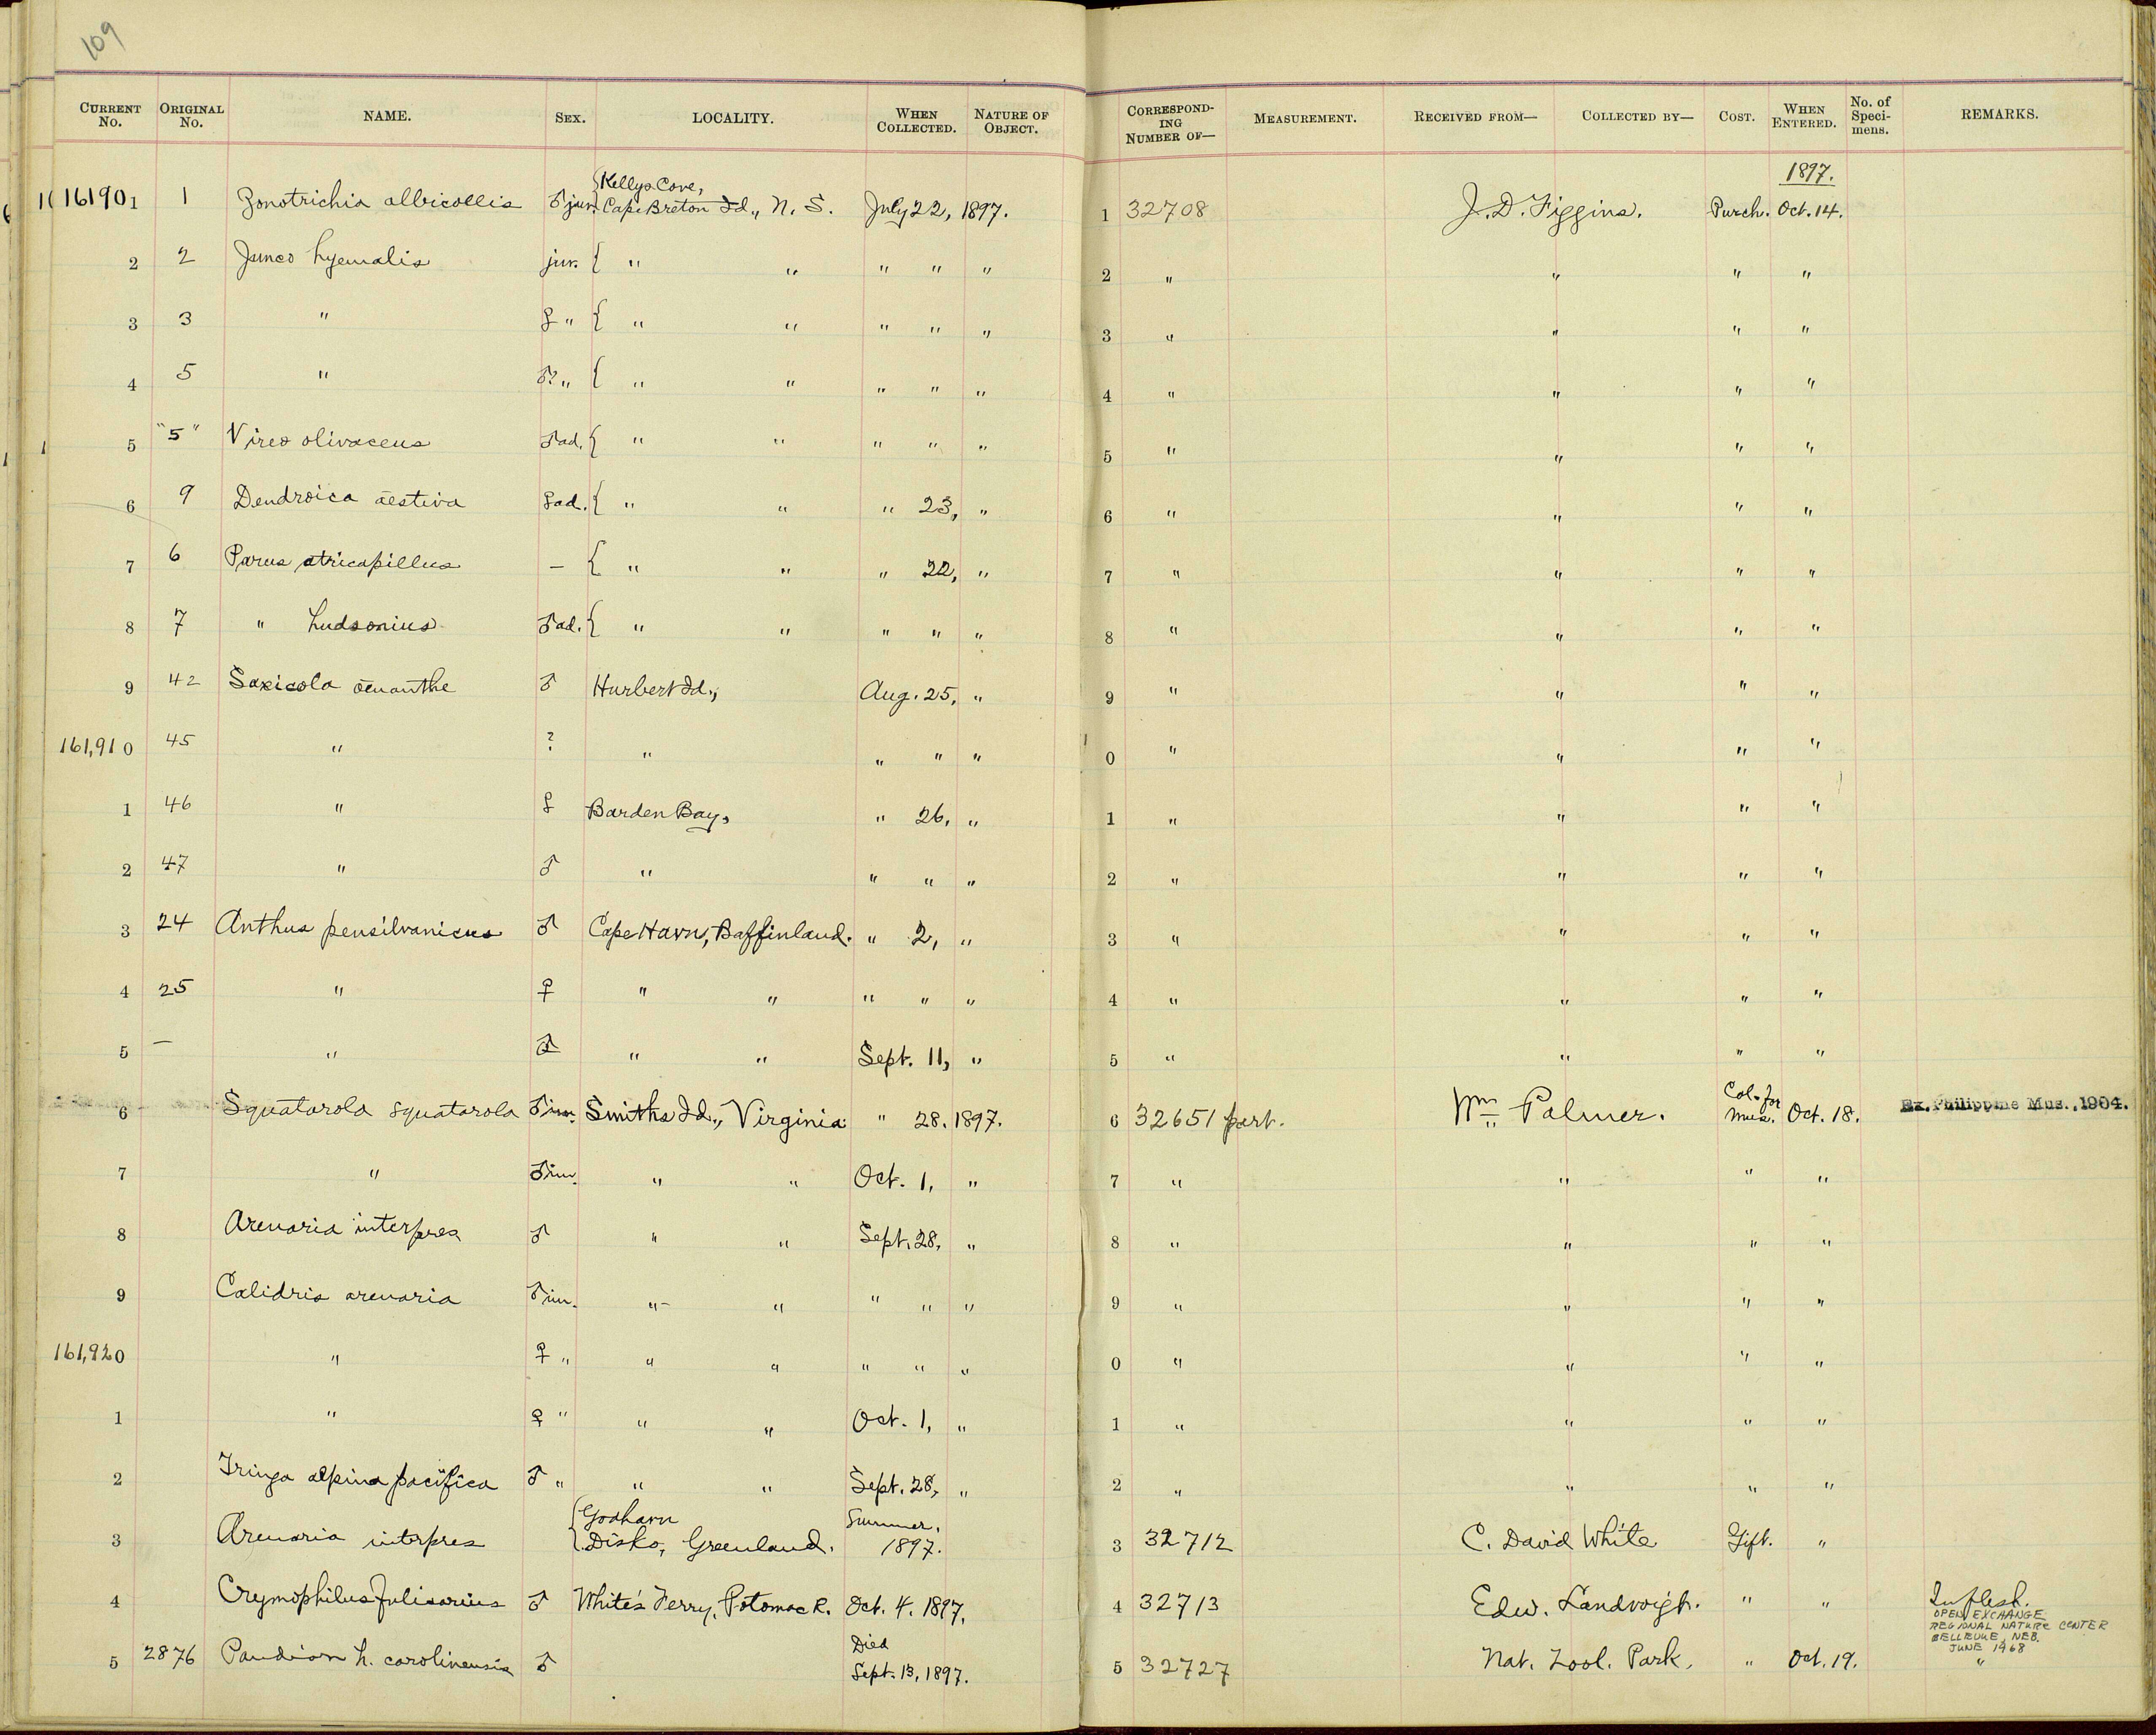 109
CURRENT No. ORIGINAL No. NAME. SEX. LOCALITY. WHEN COLLECTED. NATURE OF OBJECT. CORRESPONDING NUMBER OF— MEASUREMENT. RECEIVED FROM— COLLECTED BY— COST. WHEN ENTERED. No. of Specimens. REMARKS.
1897.
161901 1 Zonotrichia albicollis ♂ juv. { Kellys Cove, Cape Breton Id., N. S. July 22, 1897. 1 32708 J. D. Figgins. Purch. Oct. 14.
2 2 Junco hyemalis juv. { " " " " " 2 " " " "
3 3 " ♀ " { " " " " " 3 " " " "
4 5 " ♂? " { " " " " " 4 " " " "
5 "5" Vireo olivaceus ♂ ad. { " " " " " 5 " " " "
6 9 Dendroica aestiva ♀ ad. { " " " 23, " 6 " " " "
7 6 Parus atricapillus – { " " " 22, " 7 " " " "
8 7 " hudsonius ♂ ad. { " " " " " 8 " " " "
9 42 Saxicola oenanthe ♂ Hurbert Id., Aug. 25, " 9 " " " "
161,910 45 " ? " " " " 0 " " " "
1 46 " ♀ Barden Bay, " 26, " 1 " " " "
2 47 " ♂ " " " " 2 " " " "
3 24 Anthus pensilvanicus ♂ Cape Havn, Baffinland. " 2, " 3 " " " "
4 25 " ♀ " " " " " 4 " " " "
5 — " ♂ " " Sept. 11, " 5 " " " "
6 Squatarola squatarola ♂ im. Smiths Id., Virginia " 28. 1897. 6 32651 part. Wm Palmer. Col. for Mus. Oct. 18. Ex. Philippine Mus., 1904.
7 " ♂ im. " " Oct. 1, " 7 " " " "
8 Arenaria interpres ♂ " " Sept. 28, " 8 " " " "
9 Calidris arenaria ♂ im. " " " " " 9 " " " "
161,920 " ♀ " " " " " " 0 " " " "
1 " ♀ " " " Oct. 1, " 1 " " " "
2 Tringa alpina pacifica ♂ " " " Sept. 28, " 2 " " " "
3 Arenaria interpres { Godhavn Disko, Greenland. Summer. 1897. 3 32712 C. David White Gift. "
4 Crymophilus fulicarius ♂ White's Ferry, Potomac R. Oct. 4. 1897. 4 32713 Edw. Landvoigt. " " In flesh.
OPEN EXCHANGE
REGIONAL NATURE CENTER
BELLEVUE, NEB.
JUNE 1968
5 2876 Pandion h. carolinensis ♂ Died Sept. 13, 1897. 5 32727 Nat. Zool. Park. " Oct. 19. "